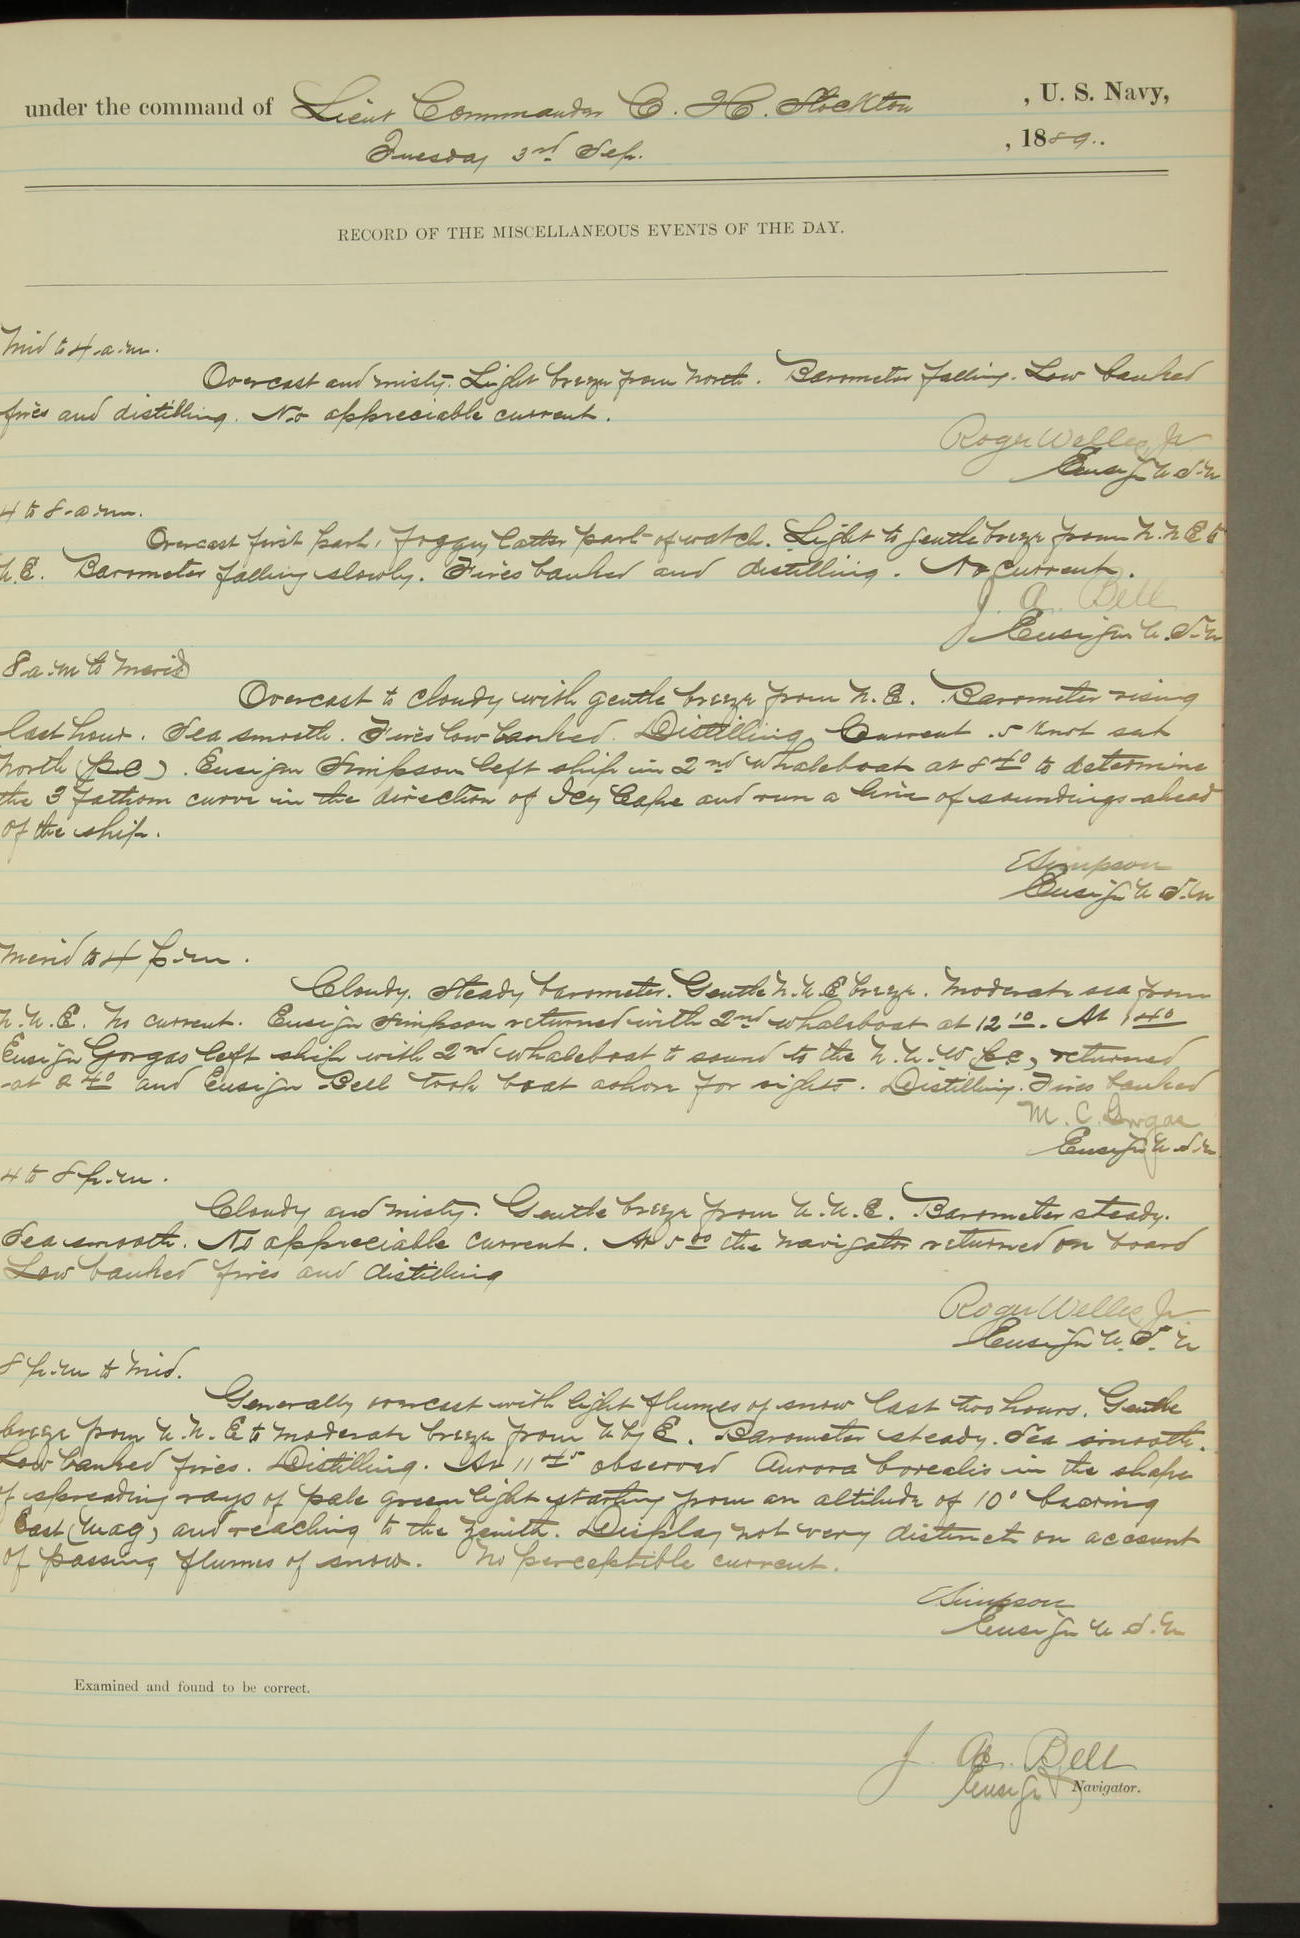 under the command of Lieut Commander C. H. Stockton , U. S. Navy,
Tuesday 3rd Sep. , 1889..
RECORD OF THE MISCELLANEOUS EVENTS OF THE DAY.
Mid to 4 a.m.
Overcast and misty. Light breeze from North. Barometer falling. Low banked
fires and distilling. No appreciable current.
Roger Welles, Jr
Ensign U.S.N
4 to 8 a.m.
Overcast first part, foggy latter part of watch. Light to gentle breeze from N.N.E to
N.E. Barometer falling slowly. Fires banked and distilling. No current.
J. A. Bell
Ensign U.S.N
8 a.m to Merid
Overcast to cloudy with gentle breeze from N.E. Barometer rising
last hour. Sea smooth. Fires low banked. Distilling. Current .5 knot set
North (p.c). Ensign Simpson left ship in 2nd whaleboat at 8 40 to determine
the 3 fathom curve in the direction of Icy Cape and run a line of soundings ahead
of the ship.
E Simpson
Ensign U.S.N
Merid to 4 p.m.
Cloudy. Steady barometer. Gentle N.N.E breeze. Moderate sea from
N.N.E. No current. Ensign Simpson returned with 2nd whaleboat at 12 10. At 1 40
Ensign Gorgas left ship with 2nd whaleboat to sound to the N.N.W (p.c), returned
at 2 40 and Ensign Bell took boat ashore for sights. Distilling. Fires banked
M. C. Gorgas
Ensign U.S.N
4 to 8 p.m.
Cloudy and misty. Gentle breeze from N.N.E. Barometer steady.
Sea smooth. No appreciable current. At 5 00 the navigator returned on board
Low banked fires and distilling
Roger Welles, Jr
Ensign U.S.N
8 p.m to Mid.
Generally overcast with light flurries of snow last two hours. Gentle
breeze from N.N.E to moderate breeze from N by E. Barometer steady. Sea smooth.
Low banked fires. Distilling. At 11 45 observed Aurora borealis in the shape
of spreading rays of pale green light starting from an altitude of 10° bearing
East (mag) and reaching to the zenith. Display not very distinct on account
of passing flurries of snow. No perceptible current.
E Simpson
Ensign U.S.N
Examined and found to be correct.
J. A. Bell
Ensign Navigator.